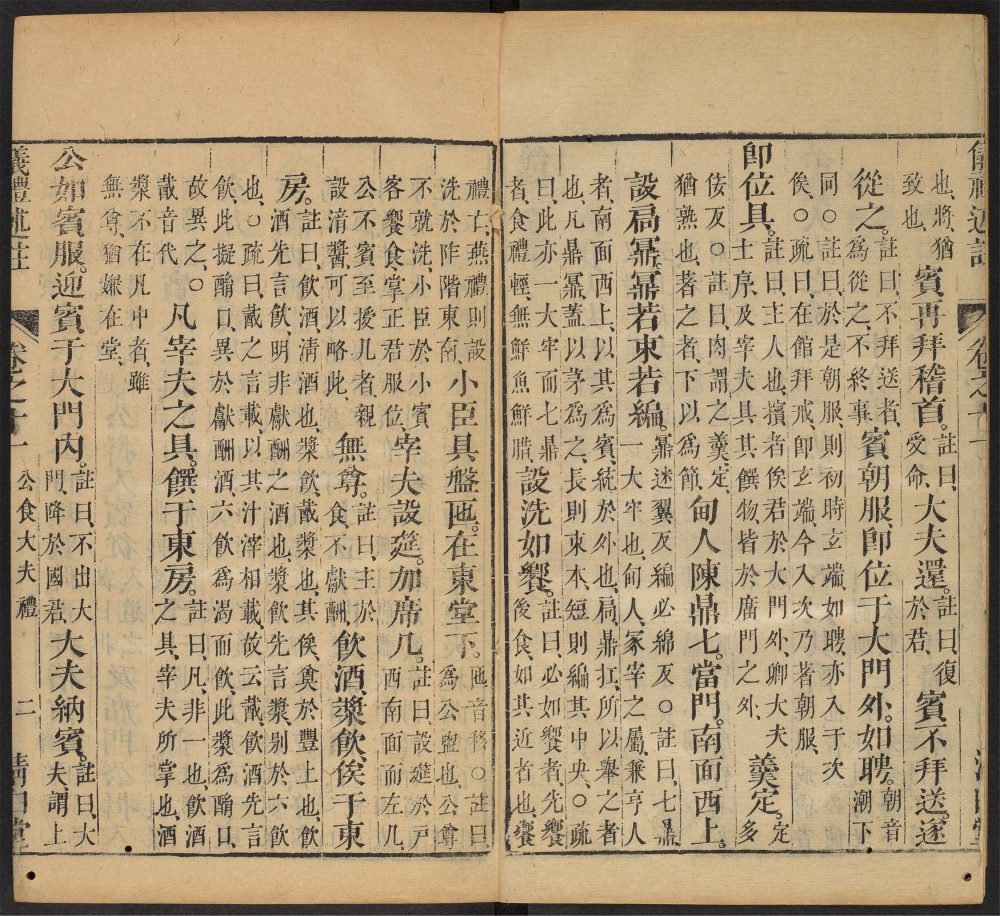 也、將猶致也、賓再拜稽首。註曰、受命、大夫還。註曰、復於君、賓不拜送。遂
從之。註曰、不拜送者、為從之、不終事、賓朝服卽位于大門外。如聘。朝音潮下
同○註曰、於是朝服、則初時玄端、如聘、亦入于次俟、○疏曰、在館拜戒、卽玄端、今入次乃著朝服、
卽位具。註曰、主人也、擯者俟君於大門外、卿大夫士序、及宰夫具其饌物、皆於廟門之外、羹定。定多
佞反○註曰、肉謂之羹、定、猶熟也、著之者、下以為節、甸人陳鼎七。當門。南面西上。
設扃鼏。鼏若束若編。鼏迷翼反編必綿反○註曰、七鼎、一大牢也、甸人、冢宰之屬、兼亨人
者、南面西上、以其為賓、統於外也、扃、鼎扛、所以舉之者也、凡鼎鼏、蓋以茅為之、長則束本、短則編其中央、○疏
曰、此亦一大牢而七鼎者、食禮輕、無鮮魚鮮腊、設洗如饗。註曰、必如饗者、先饗後食、如其近者也、饗
禮亡、燕禮則設洗於阼階東南、小臣具盤匜。在東堂下。匜音移○註曰、為公盥也、公尊
不就洗、小臣於小賓客饗食、掌正君服位、宰夫設筵。加席几。註曰、設筵於戶西、南面而左几、
公不賓至授几者、親設湆醬、可以略此、無尊。註曰、主於食、不獻酬、飲酒、漿飲、俟于東
房。註曰、飲酒、清酒也、漿飲、酨漿也、其俟、奠於豐上也、飲酒先言飲、明非獻酬之酒也、漿飲先言漿、別於六飲
也、○疏曰、酨之言載、以其汁滓相載、故云酨、飲酒先言飲、此擬酳口、異於獻酬酒、六飲為渴而飲、此漿為酳口、
故異之、○酨音代、凡宰夫之具。饌于東房。註曰、凡、非一也、飲酒之具、宰夫所掌也、酒
漿不在凡中者、雖無尊、猶嫌在堂、
公如賓服。迎賓于大門內。註曰、不出大門、降於國君、大夫納賓。註曰、大夫、謂上
儀禮述註
公食大夫禮
二